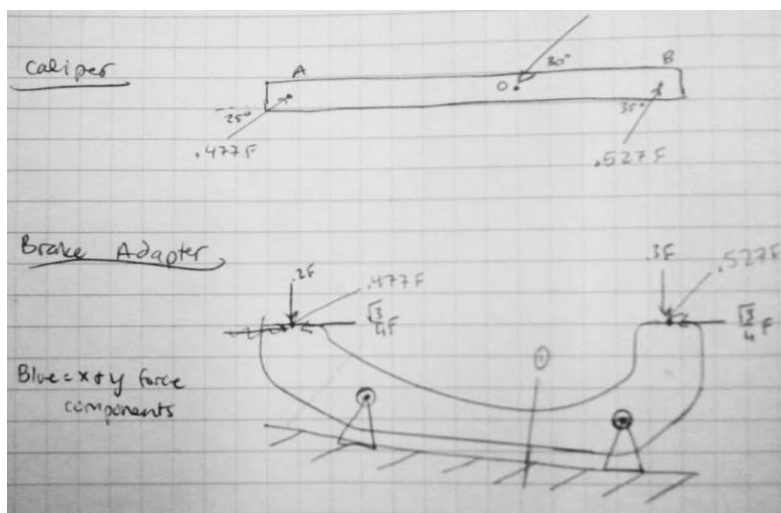 Caliper
A
30°
B
O
25°
35°
.477F
.527F
Brake Adapter
.2F
.477F
.3F
.527F
√3/4 F
√3/4 F
Blue = x & y force
components